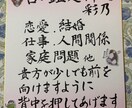 彩乃
恋愛.結婚
仕事.人間関係
家庭問題 他
貴方が少しでも前を
向けますように
背中を押してあげます